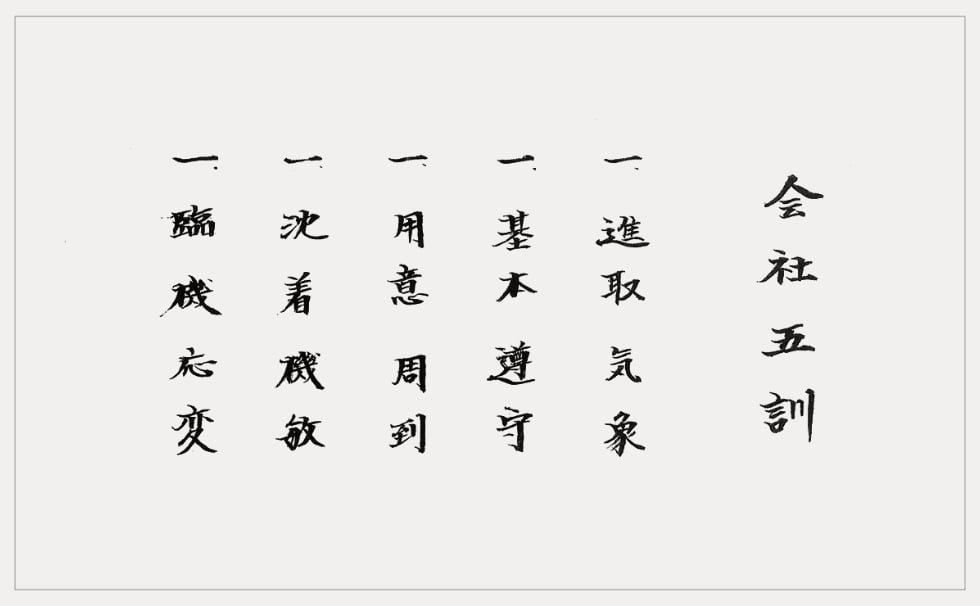 会社五訓
一、進取気象
一、基本遵守
一、用意周到
一、沈着機敏
一、臨機応変